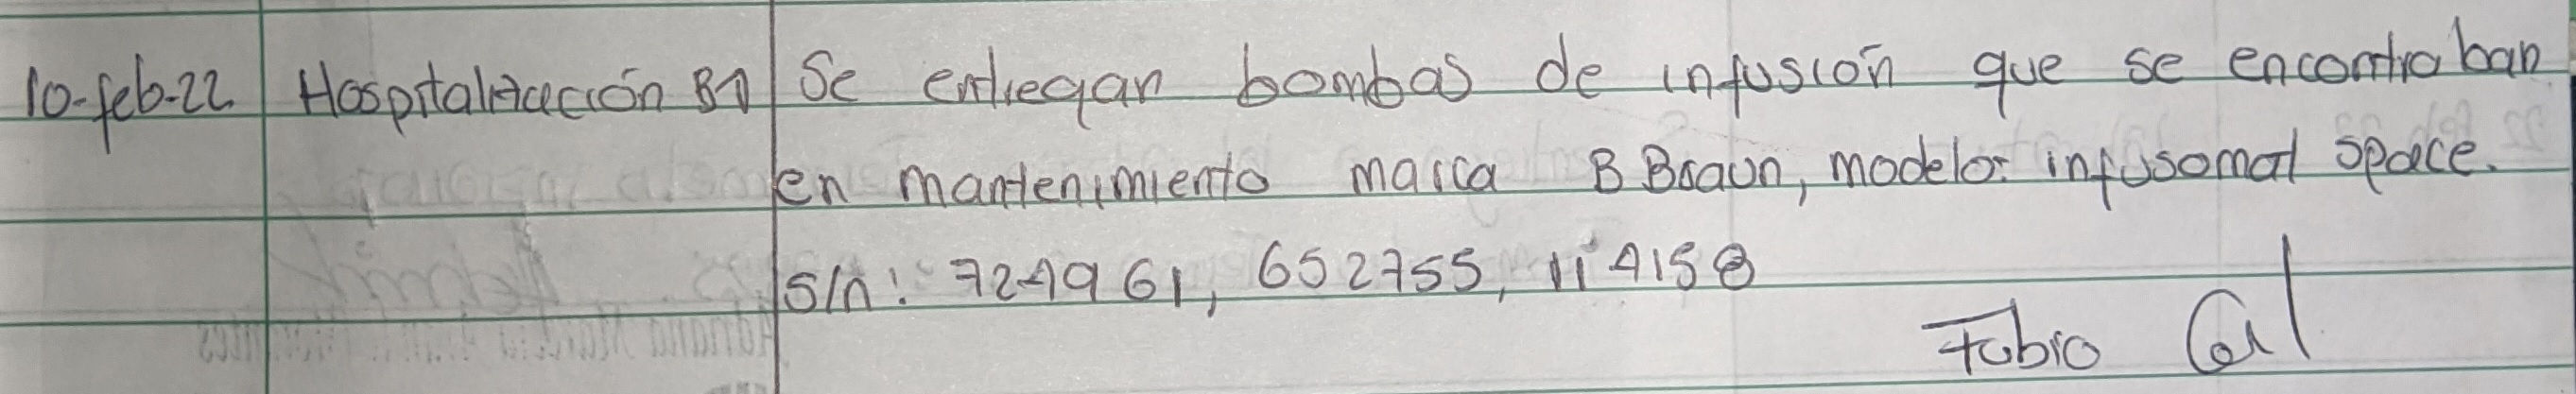 10-feb-22 Hospitalización B1 Se entregan bombas de infusión que se encontraban
en mantenimiento marca B Braun, modelo: infusomat space.
S/n: 724961, 652755, 114158
Fabio